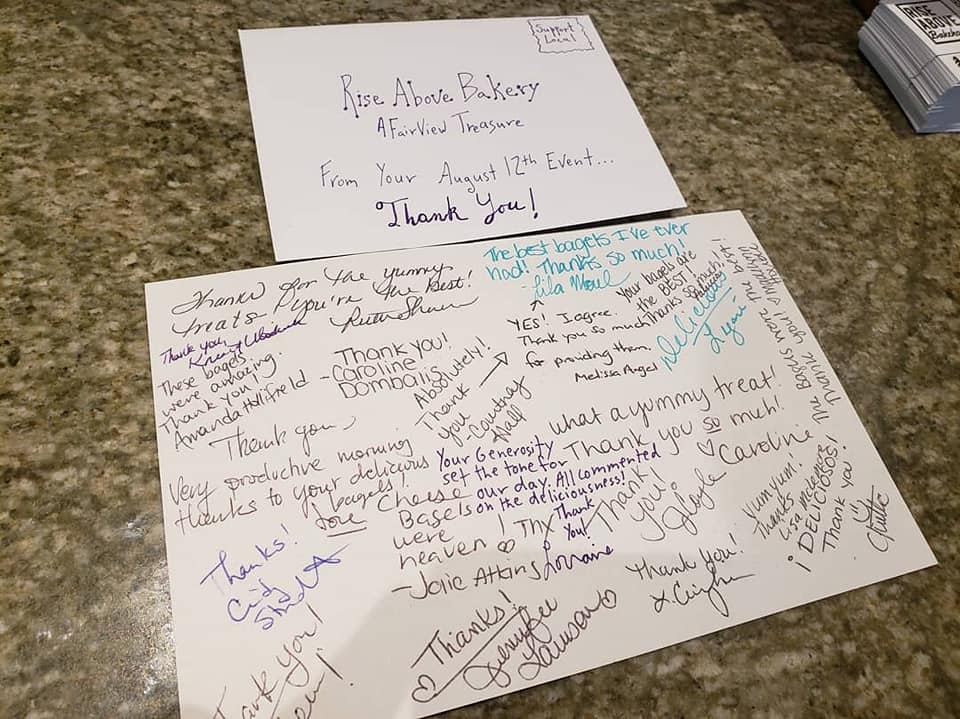 Support
Local
Rise Above Bakery
A FairView Treasure
From Your August 12th Event...
Thank You!
RISE
ABOVE
Thanks for the yummy
treats - you're the Best!
Ruth Shaw
Thank you,
These bagels
were amazing.
Thank you!
Amanda
Thank you!
-Caroline
Dombalis
Absolutely!
Thank
you
-Courtney
Hall
The best bagels I've ever
had! Thanks so much!
-Lila
YES! I agree.
Thank you so much
for providing them
Melissa Angel
Your bagels are
the BEST!
Thanks so much!
Delicious
The bagels were the
Thank you!
Thank you
Very productive morning
thanks to your delicious
bagels!
Love
Cheese
Bagels
were
heaven! ♡ Thx
-Jolie Atkins
Your Generosity
set the tone for
our day. All commented
on the deliciousness!
Thank
You!
Lorraine
what a yummy treat!
Thank you so muh!
♡ Caroline
Thank
you!
Gayle
Yumyum!
Thanks
Lisa
¡DELICIOSOS!
Thank you!
Thanks!
Thank you!
Thanks!
Jennifer
Lawson
Thank You!